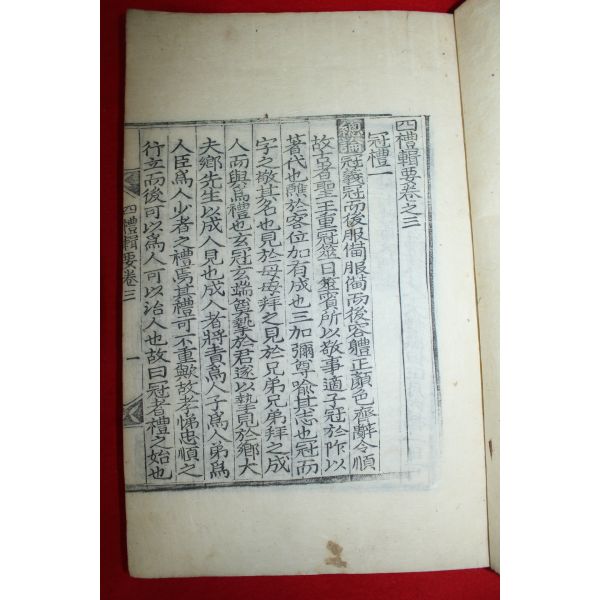 四禮輯要卷之三
冠禮一
總論冠義冠而後服備服備而後容軆正顏色齊辭令順
故古者聖王重冠筮日筮賓所以敬事適子冠於阼以
著代也醮於客位加有成也三加彌尊喩其志也冠而
字之敬其名也見於母母拜之見於兄弟兄弟拜之成
人而與爲禮也玄冠玄端奠摯於君遂以摯見於鄕大
夫鄕先生以成人見也成人者將責爲人子爲人弟爲
人臣爲人少者之禮焉其禮可不重歟故孝悌忠順之
行立而后可以爲人可以治人也故曰冠者禮之始也
四禮輯要卷三
一